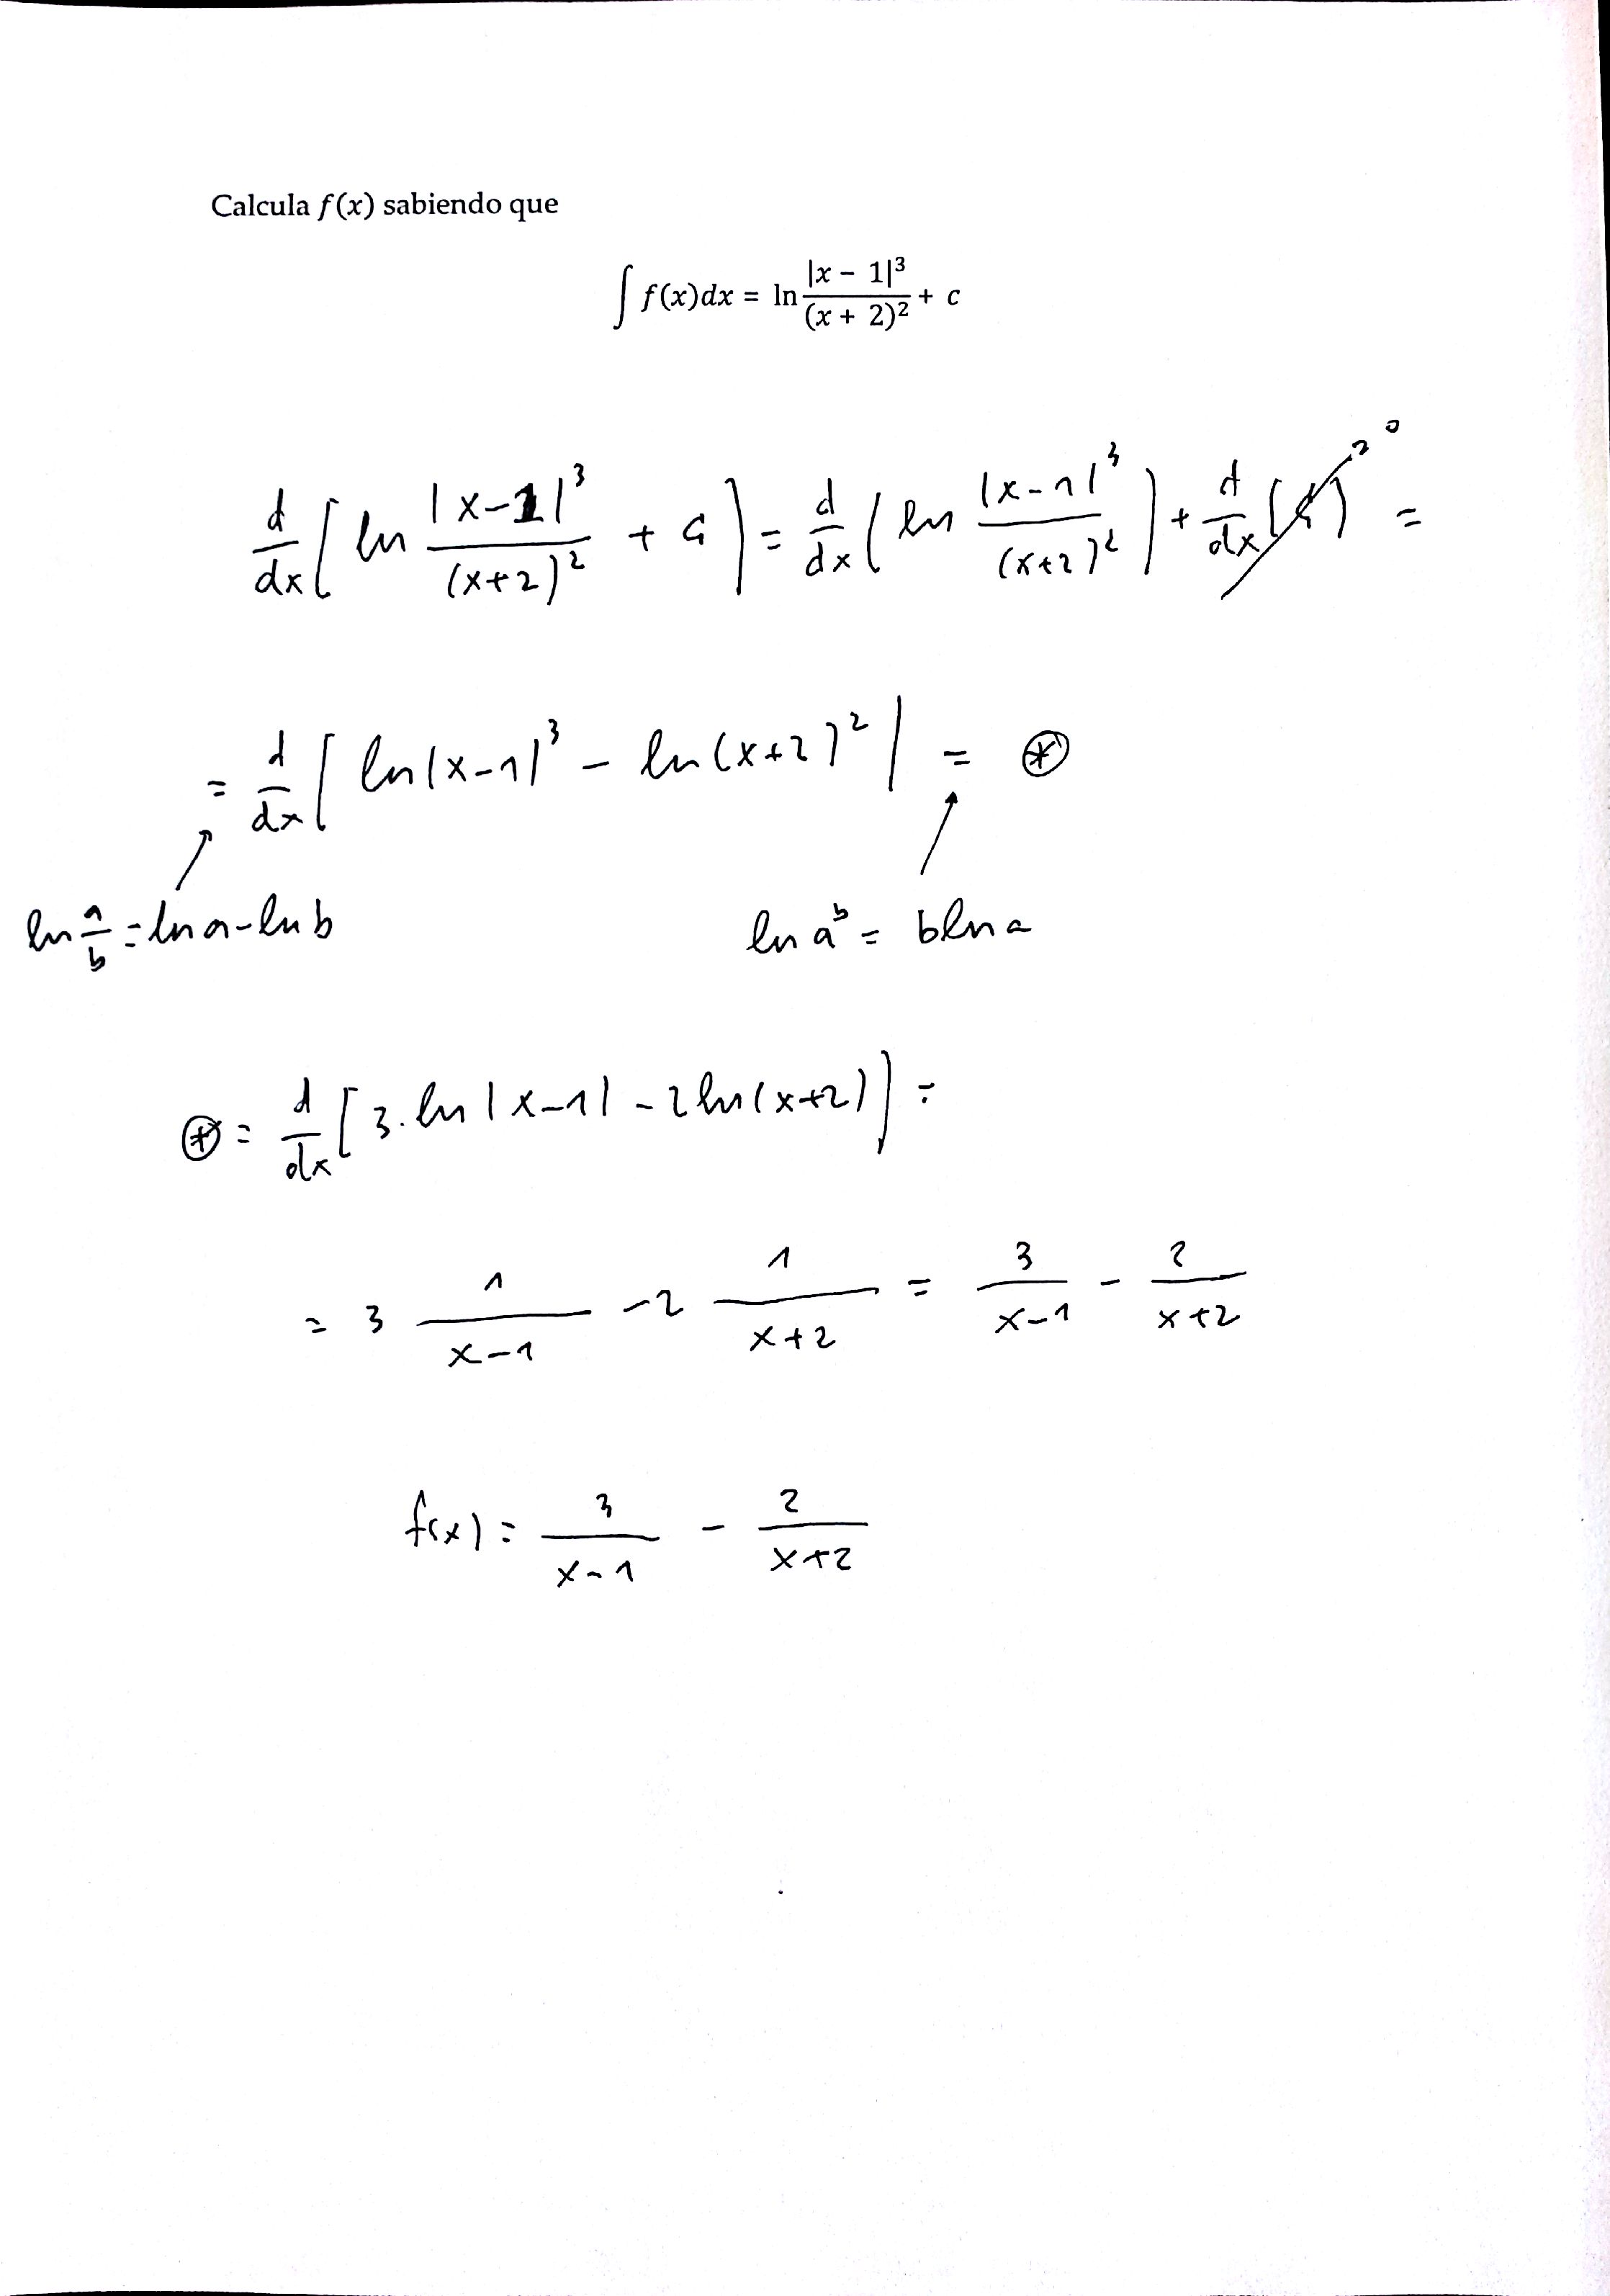 Calcula f(x) sabiendo que
∫ f(x)dx = ln |x − 1|³/(x + 2)² + c
d/dx [ ln |x−1|³/(x+2)² + c ] = d/dx ( ln |x−1|³/(x+2)² ) + d/dx (c) → 0 =
= d/dx [ ln|x−1|³ − ln(x+2)² ] = ⊛
ln a/b = ln a − ln b
ln aᵇ = b ln a
⊛ = d/dx [ 3·ln|x−1| − 2ln(x+2) ] =
= 3 1/(x−1) − 2 1/(x+2) = 3/(x−1) − 2/(x+2)
f(x) = 3/(x−1) − 2/(x+2)